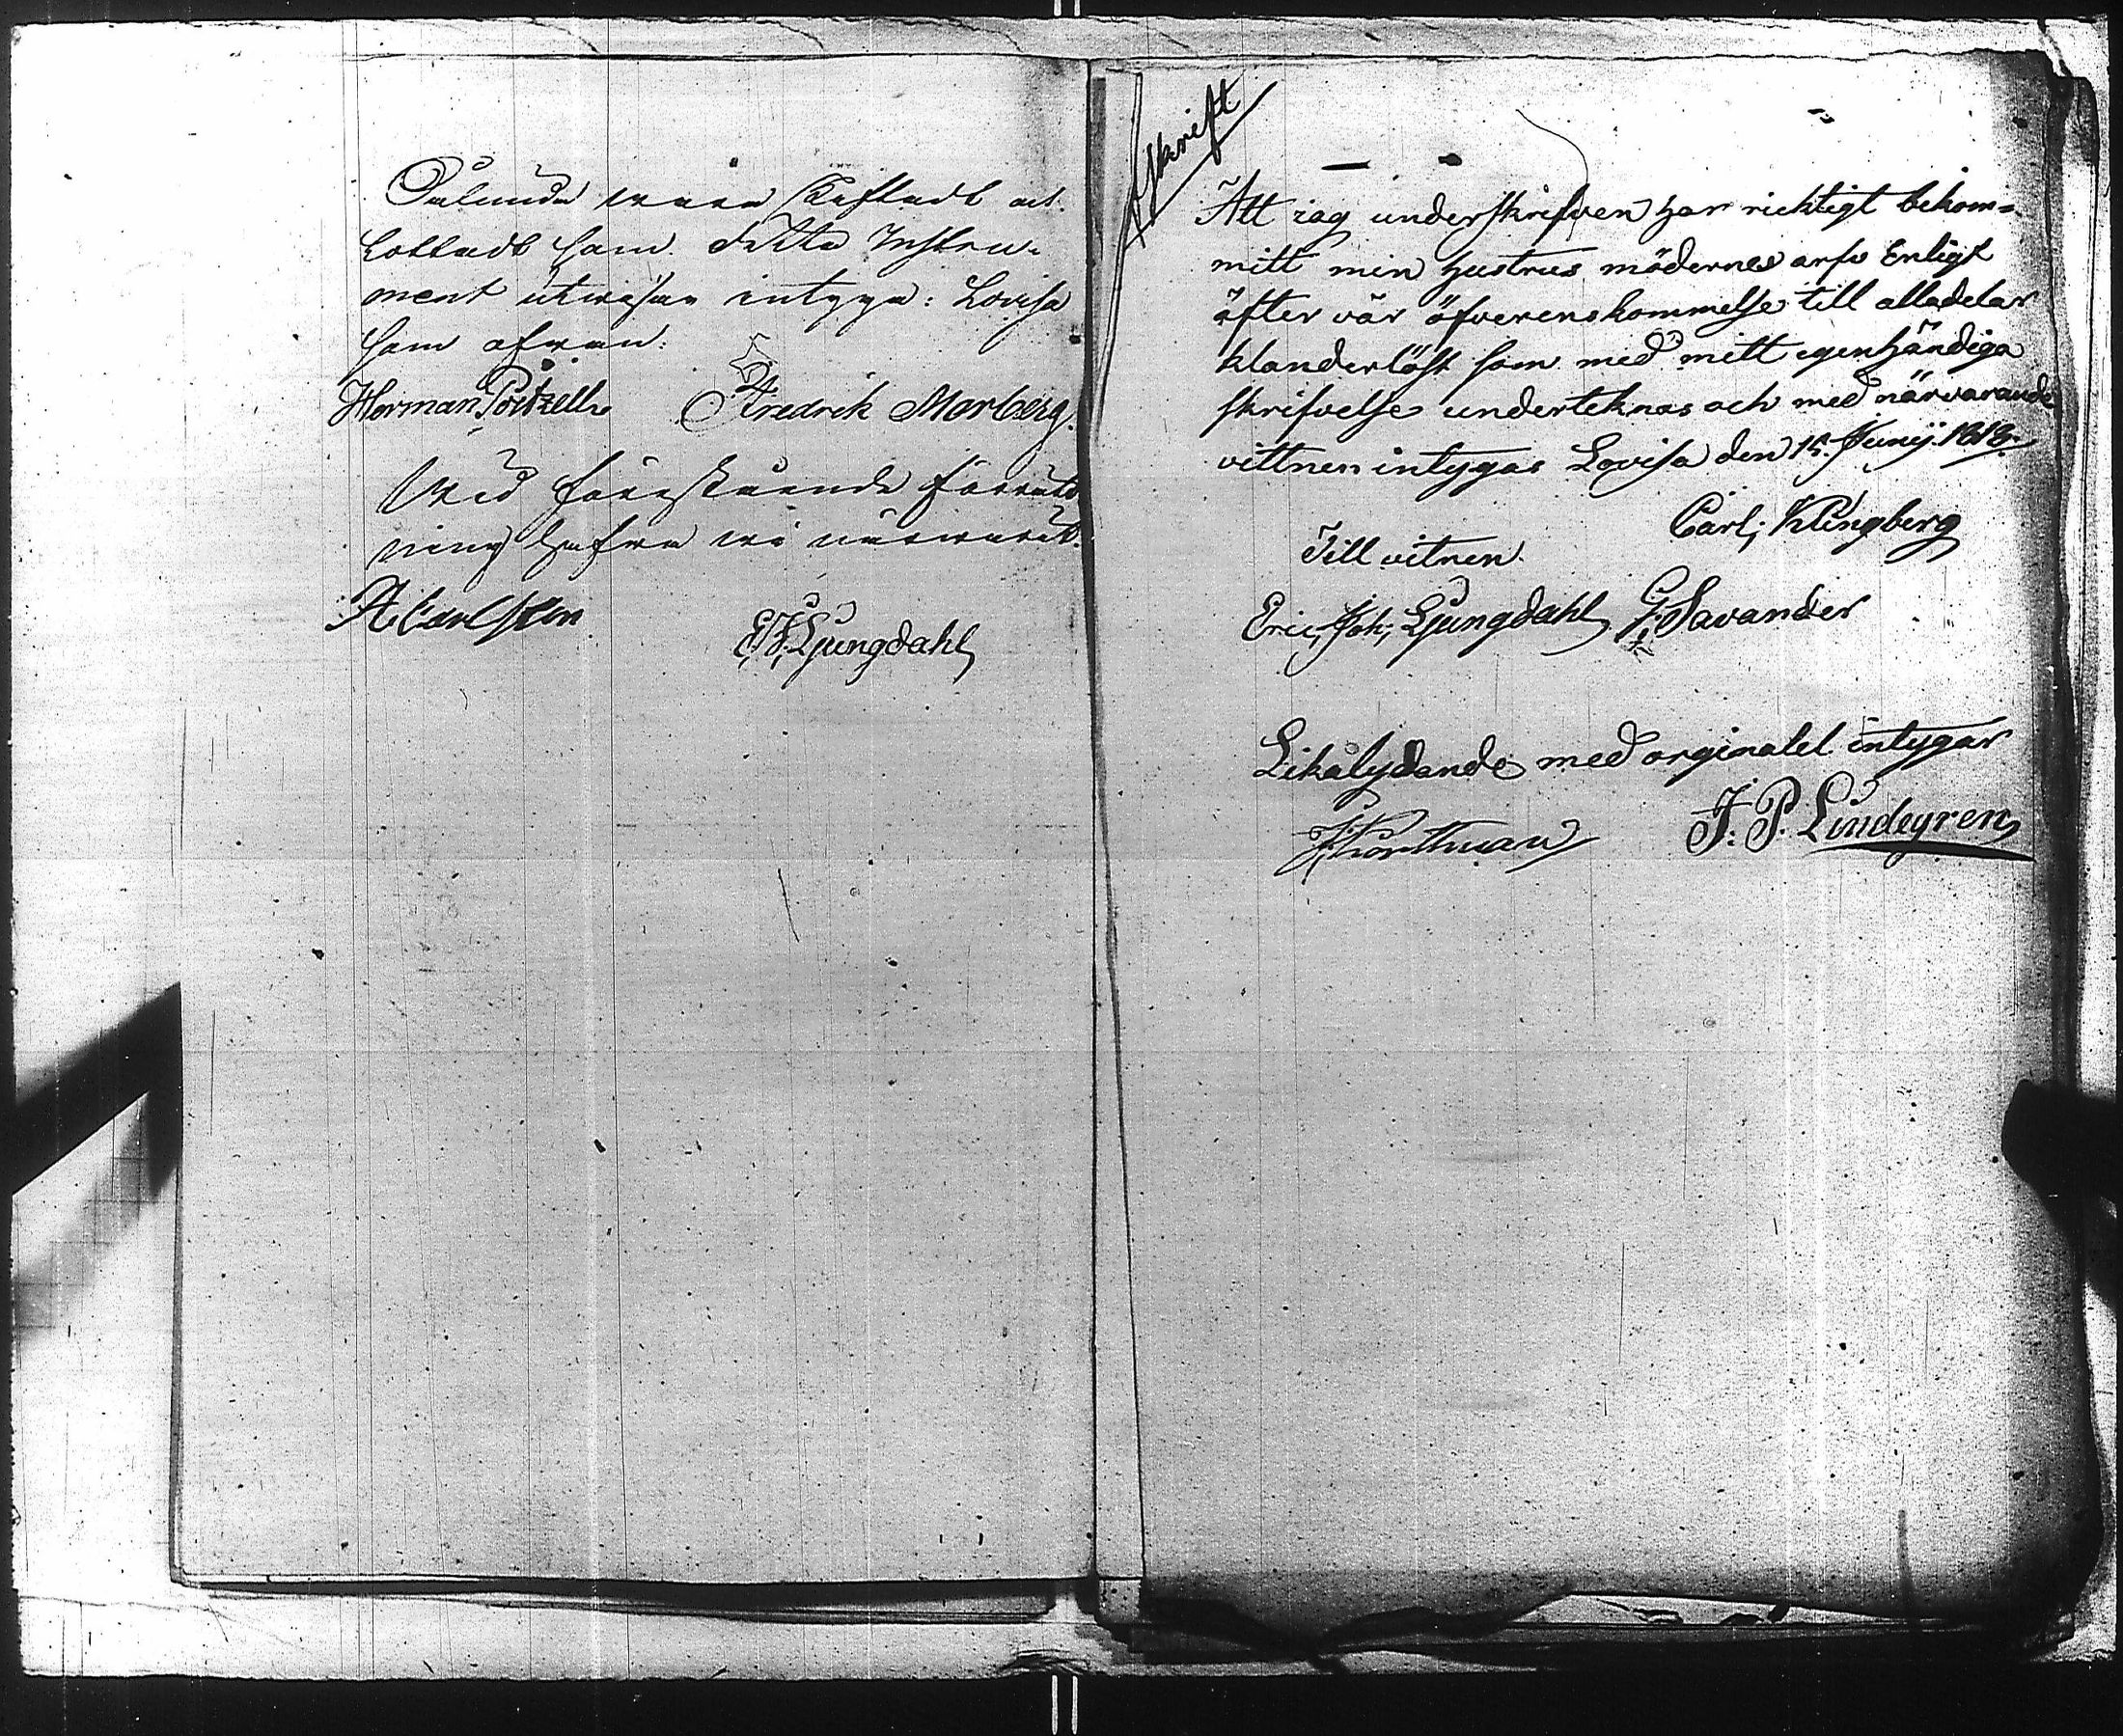 Sålunda vara skiftadt och
Lottadt som detta Instru-
ment utvisar intyga: Lovisa
som ofvan:
Herman Poitzell Fredrik Marberg.
Vid föreståendе förrätt
ning hafva vi närvarit.
A: Carlsson
E: J: Ljungdahl
Afskrift
Att iag underskrifven har richtigt bekom=
mitt min hustrus mödernes arfv Enligt
öfter vår öfverenskommelse till alladelar
klanderlöst som med mitt egenhändiga
skrifvelse underteknas och med närvarande
vittnen intygas Lovisa den 15. Junij. 1818.
Carl; Klingberg
Till vitnen.
Eric; Joh; Ljungdahl G; Savander
Likalydande med orginalet intygar
J: P. Lindegren